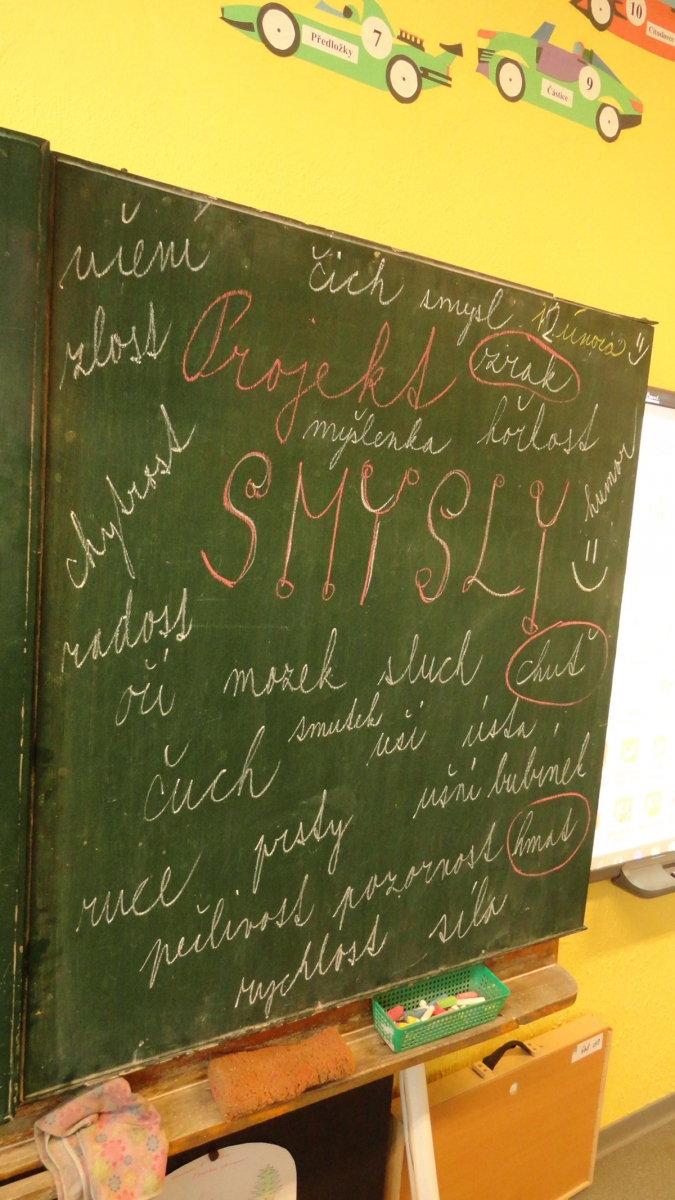 10
Citoslovce
7
Předložky
9
Částice
učení
čich
smysl
února
zlost
Projekt
zrak
myšlenka
hořkost
humor
chytrost
SMYSLY
radost
oči
mozek
sluch
chuť
čuch
smutek
uši
ústa
ušní bubínek
ruce
prsty
pečlivost
pozornost
hmat
rychlost
síla